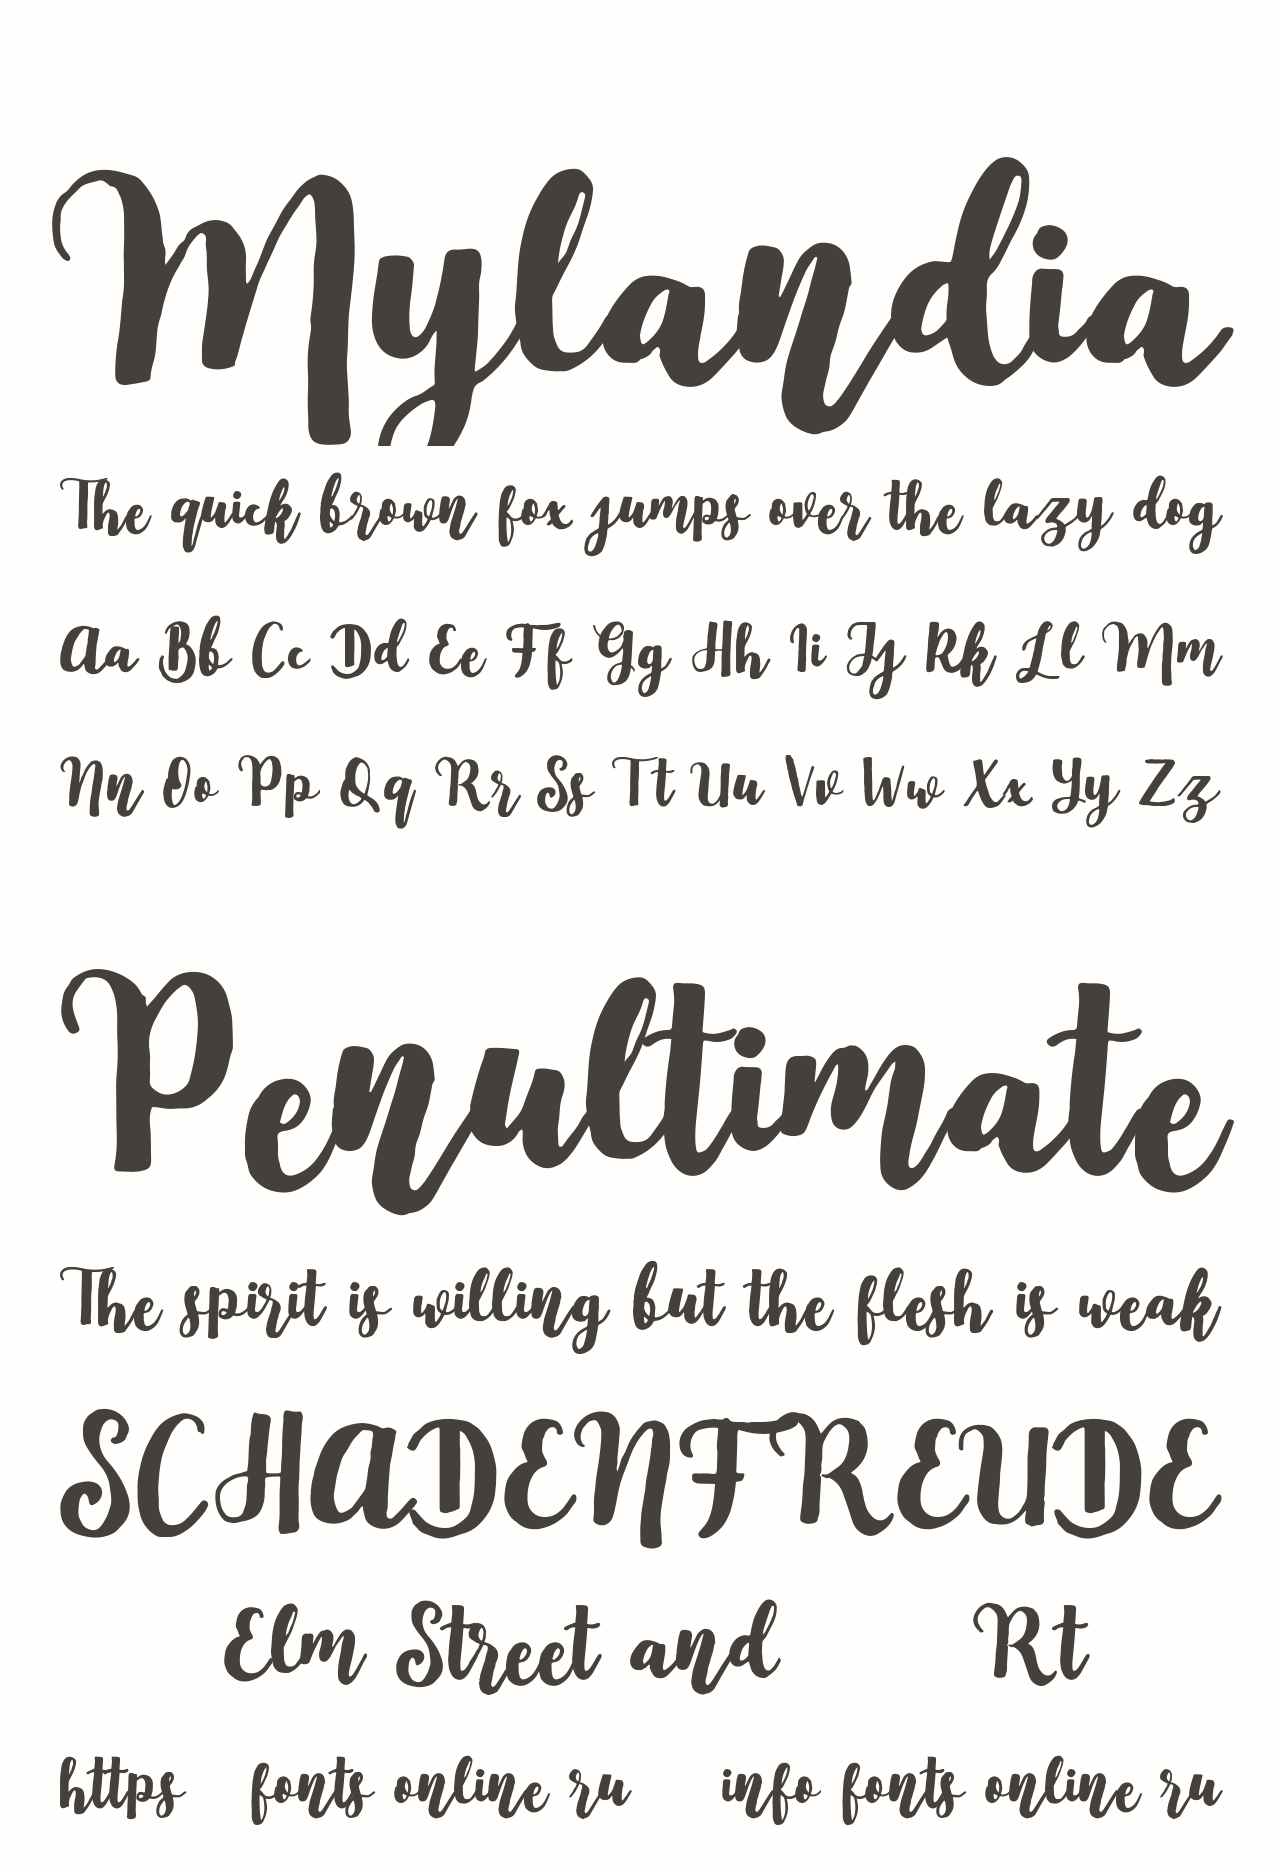 Mylandia
The quick brown fox jumps over the lazy dog
Aa Bb Cc Dd Ee Ff Gg Hh Ii Jj Rk Ll Mm
Nn Oo Pp Qq Rr Ss Tt Uu Vv Ww Xx Yy Zz
Penultimate
The spirit is willing but the flesh is weak
SCHADENFREUDE
Elm Street and Rt
https fonts online ru info fonts online ru